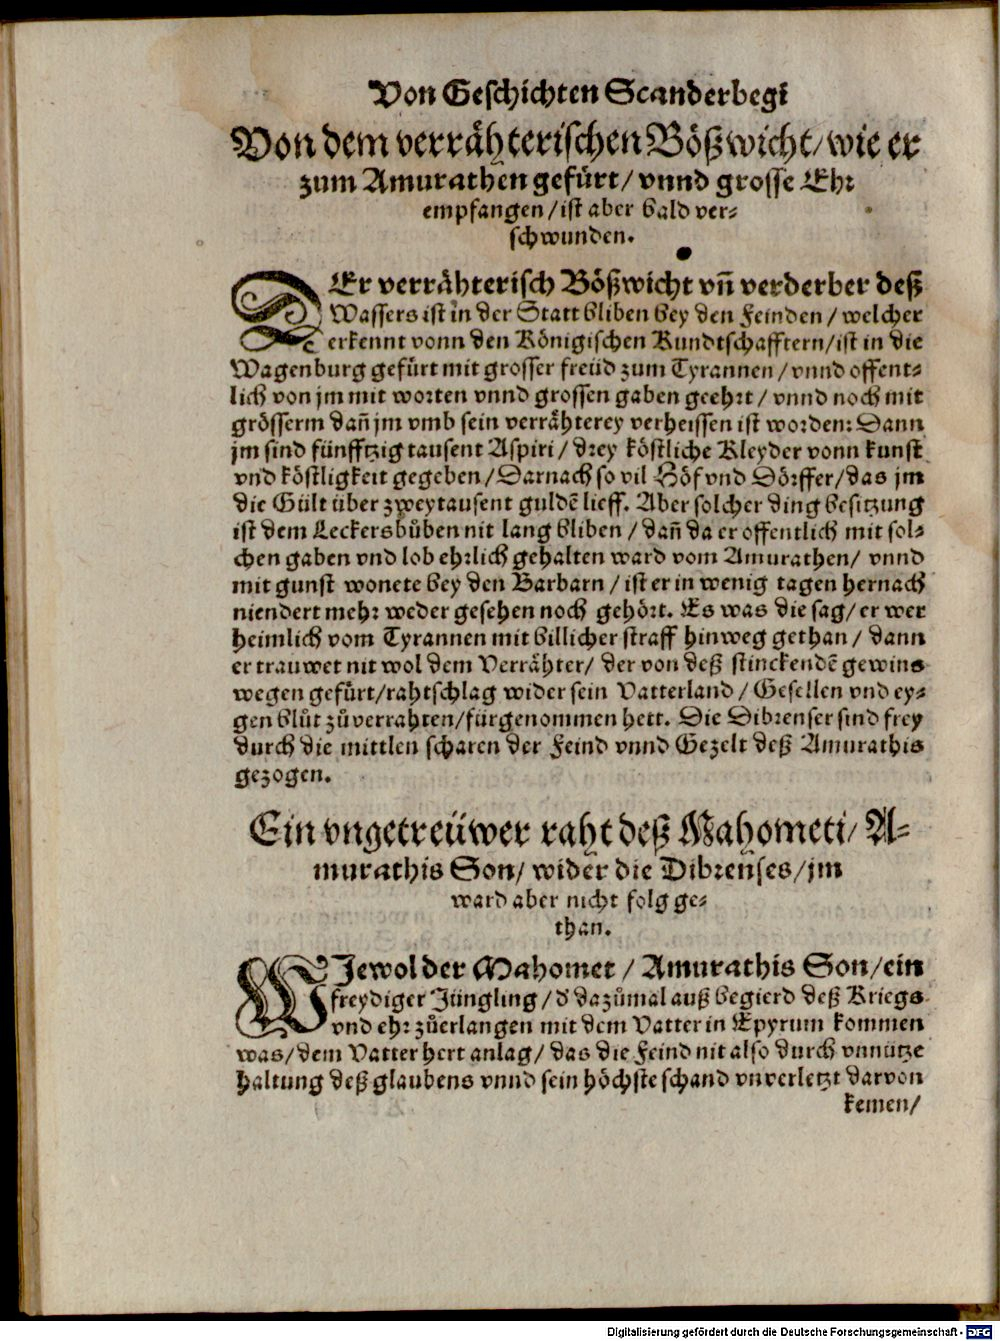 Von Geschichten Scanderbegi
Von dem verrähterischen Bößwicht/ wie er
zum Amurathen gefürt/ vnnd grosse Ehr
empfangen/ ist aber bald ver-
schwunden.
DEr verrähterisch Bößwicht vñ verderber deß
Wassers ist in der Statt bliben bey den Feinden/ welcher
erkennt vonn den Königischen Kundtschafftern/ ist in die
Wagenburg gefürt mit grosser freüd zum Tyrannen/ vnnd offent-
lich von jm mit worten vnnd grossen gaben geehrt/ vnnd noch mit
grösserm dañ jm vmb sein verrähterey verheissen ist worden: Dann
jm sind fünfftzig tausent Aspiri/ drey köstliche Kleyder vonn kunst
vnd köstligkeit gegeben/ Darnach so vil Höf vnd Dörffer/ das jm
die Gült über zweytausent guldẽ lieff. Aber solcher ding besitzung
ist dem Leckersbůben nit lang bliben/ dañ da er offentlich mit sol-
chen gaben vnd lob ehrlich gehalten ward vom Amurathen/ vnnd
mit gunst wonete bey den Barbarn/ ist er in wenig tagen hernach
niendert mehr weder gesehen noch gehört. Es was die sag/ er wer
heimlich vom Tyrannen mit billicher straff hinweg gethan/ dann
er trauwet nit wol dem Verrähter/ der von deß stinckendẽ gewins
wegen gefürt/ rahtschlag wider sein Vatterland/ Gesellen vnd ey-
gen blůt zůverrahten/ fürgenommen hett. Die Dibrenser sind frey
durch die mittlen scharen der Feind vnnd Gezelt deß Amurathis
gezogen.
Ein vngetreüwer raht deß Mahometi/ A-
murathis Son/ wider die Dibrenses/ jm
ward aber nicht folg ge-
than.
WJewol der Mahomet/ Amurathis Son/ ein
freydiger Jüngling/ d' dazůmal auß begierd deß Kriegs
vnd ehr zůerlangen mit dem Vatter in Epyrum kommen
was/ dem Vatter hert anlag/ das die Feind nit also durch vnnütze
haltung deß glaubens vnnd sein höchste schand vnverletzt darvon
kemen/
Digitalisierung gefördert durch die Deutsche Forschungsgemeinschaft - DFG